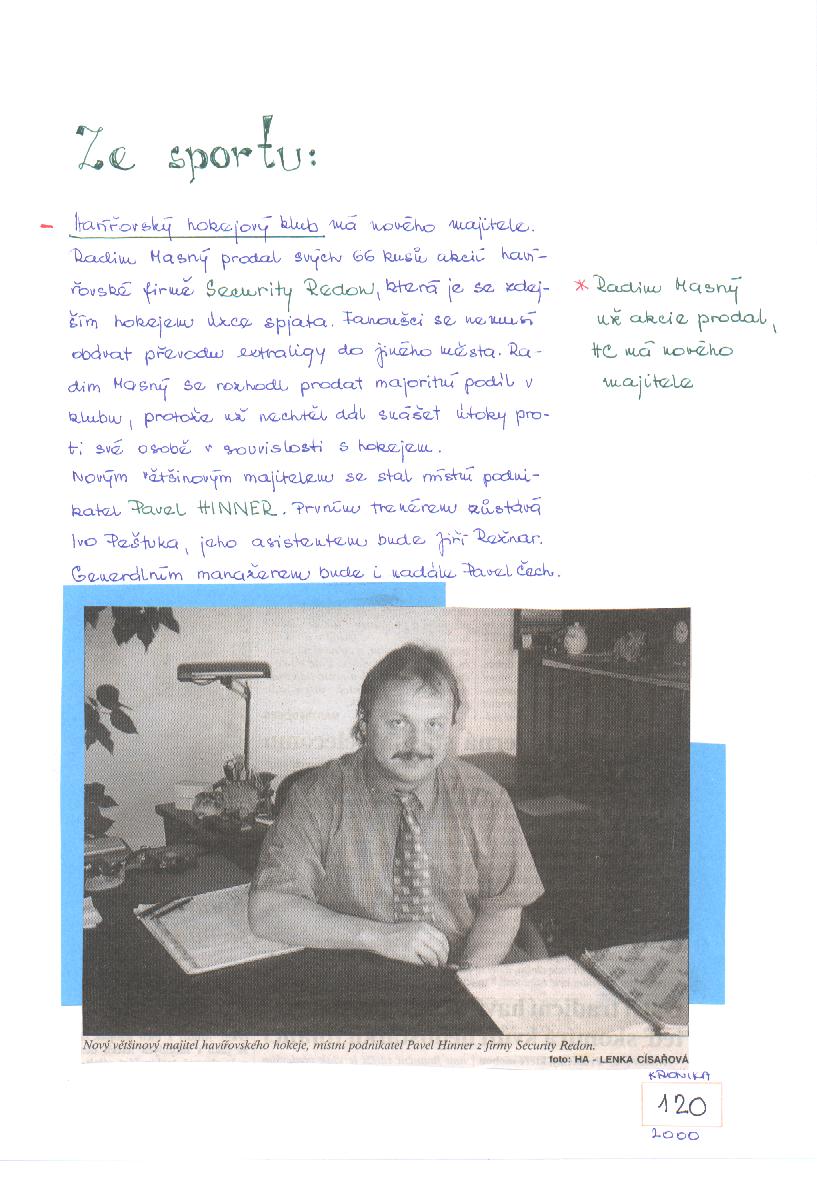 Ze sportu:
- Havířovský hokejový klub má nového majitele.
Radim Masný prodal svých 66 kusů akcií haví-
řovské firmě Security Redon, která je se zdej-
ším hokejem úzce spjata. Fanoušci se nemusí
obávat převodu extraligy do jiného města. Ra-
dim Masný se rozhodl prodat majoritní podíl v
klubu, protože už nechtěl dál snášet útoky pro-
ti své osobě v souvislosti s hokejem.
Novým většinovým majitelem se stal místní podni-
katel Pavel HINNER. Prvním trenérem zůstává
Ivo Peštuka, jeho asistentem bude Jiří Režnar.
Generálním manažerem bude i nadále Pavel Čech.
* Radim Masný
už akcie prodal,
HC má nového
majitele
Nový většinový majitel havířovského hokeje, místní podnikatel Pavel Hinner z firmy Security Redon.
foto: HA - LENKA CÍSAŘOVÁ
KRONIKA
120
2000